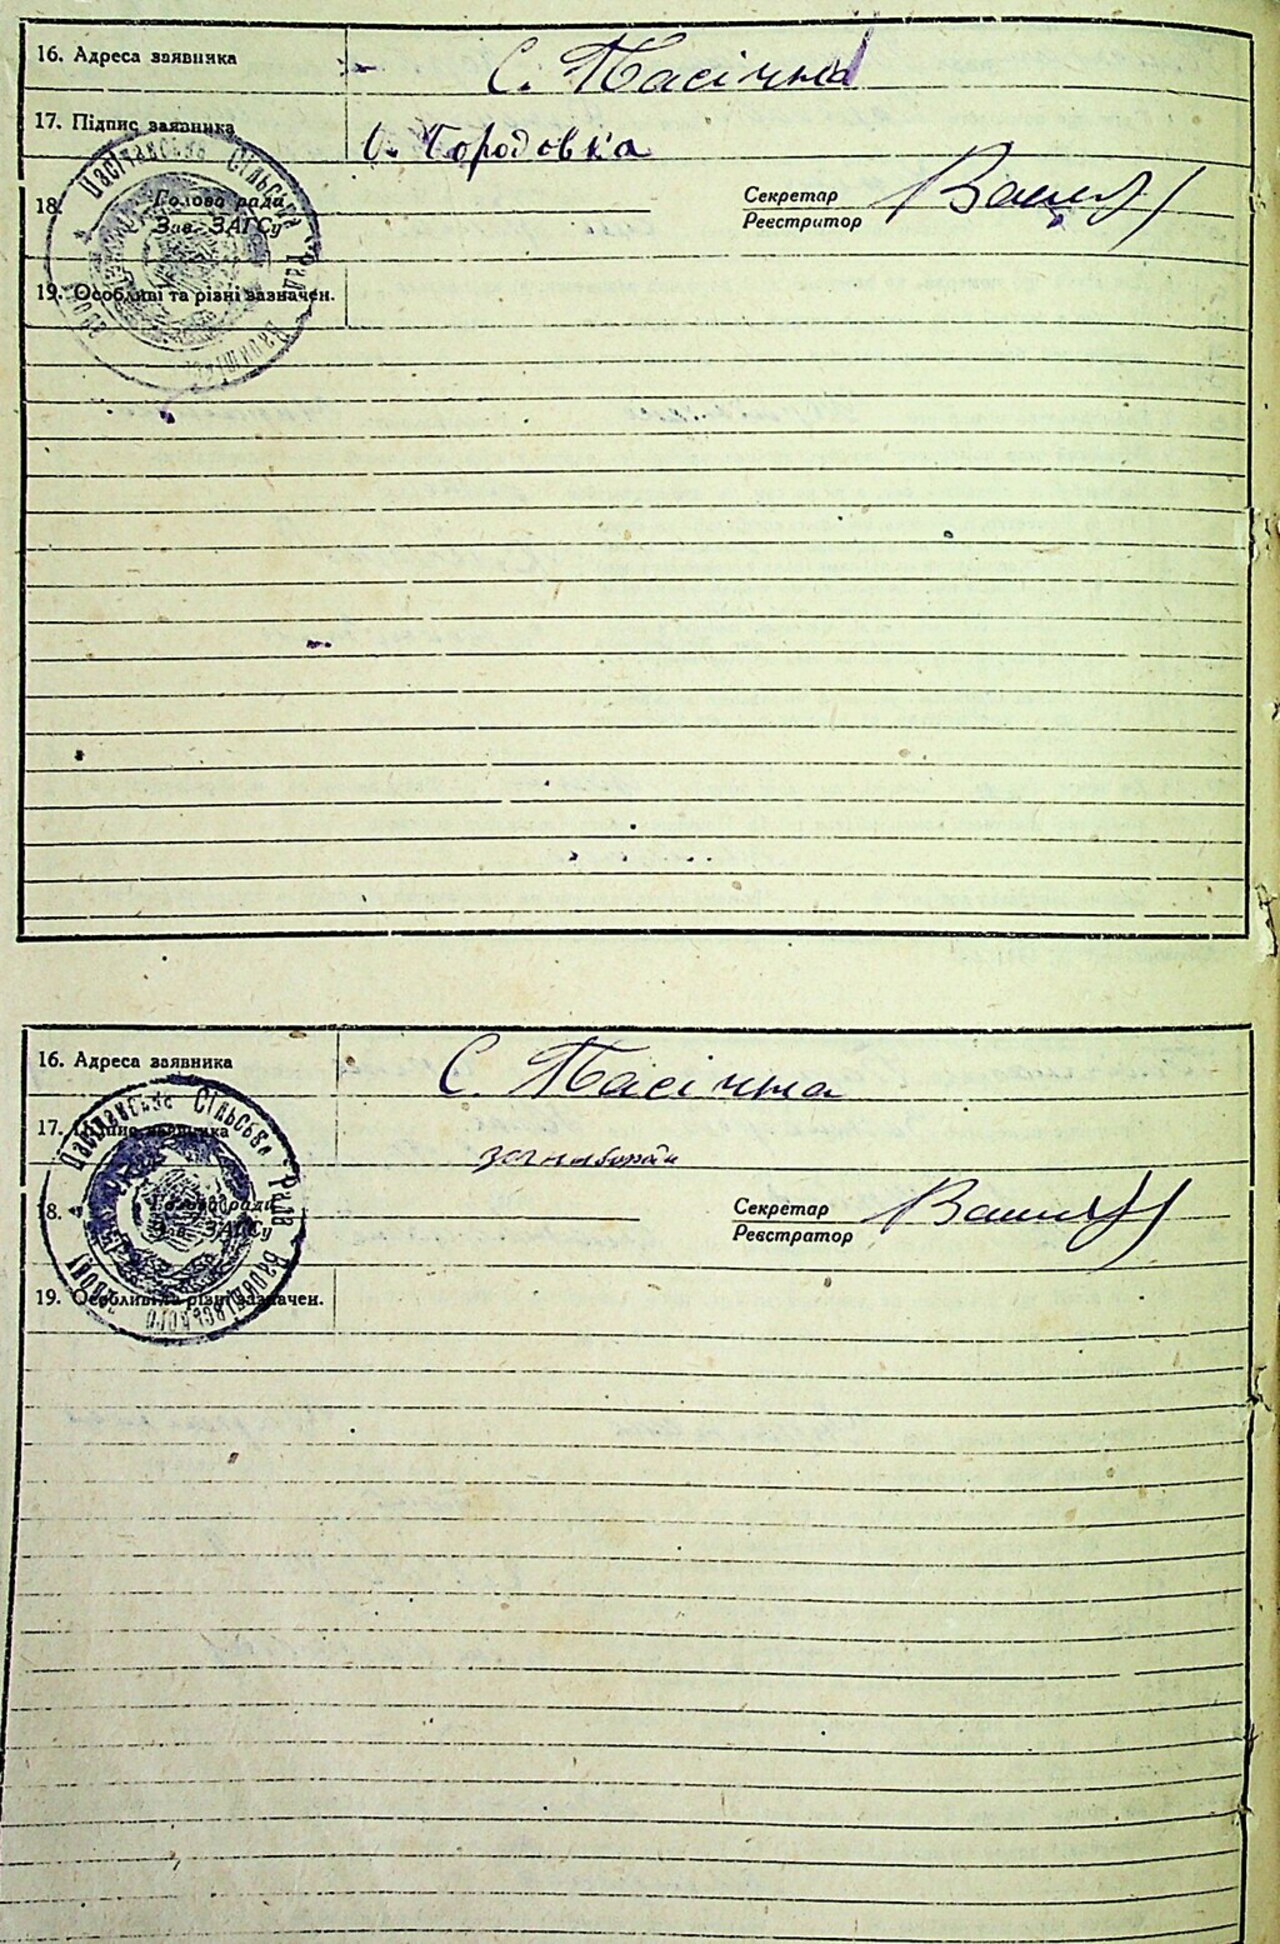 16. Адреса заявника С. Пасічна
17. Підпис заявника О. Городовка
18. Голова ради Секретар
Зав. ЗАГСу Реестритор
19. Особливі та різні зазначен.
Пасічанська Сільська Рада
16. Адреса заявника С. Пасічна
17. Підпис заявника
18. Голова ради Секретар
Зав. ЗАГСу Реєстратор
19. Особливі та різні зазначен.
Пасічанська Сільська Рада